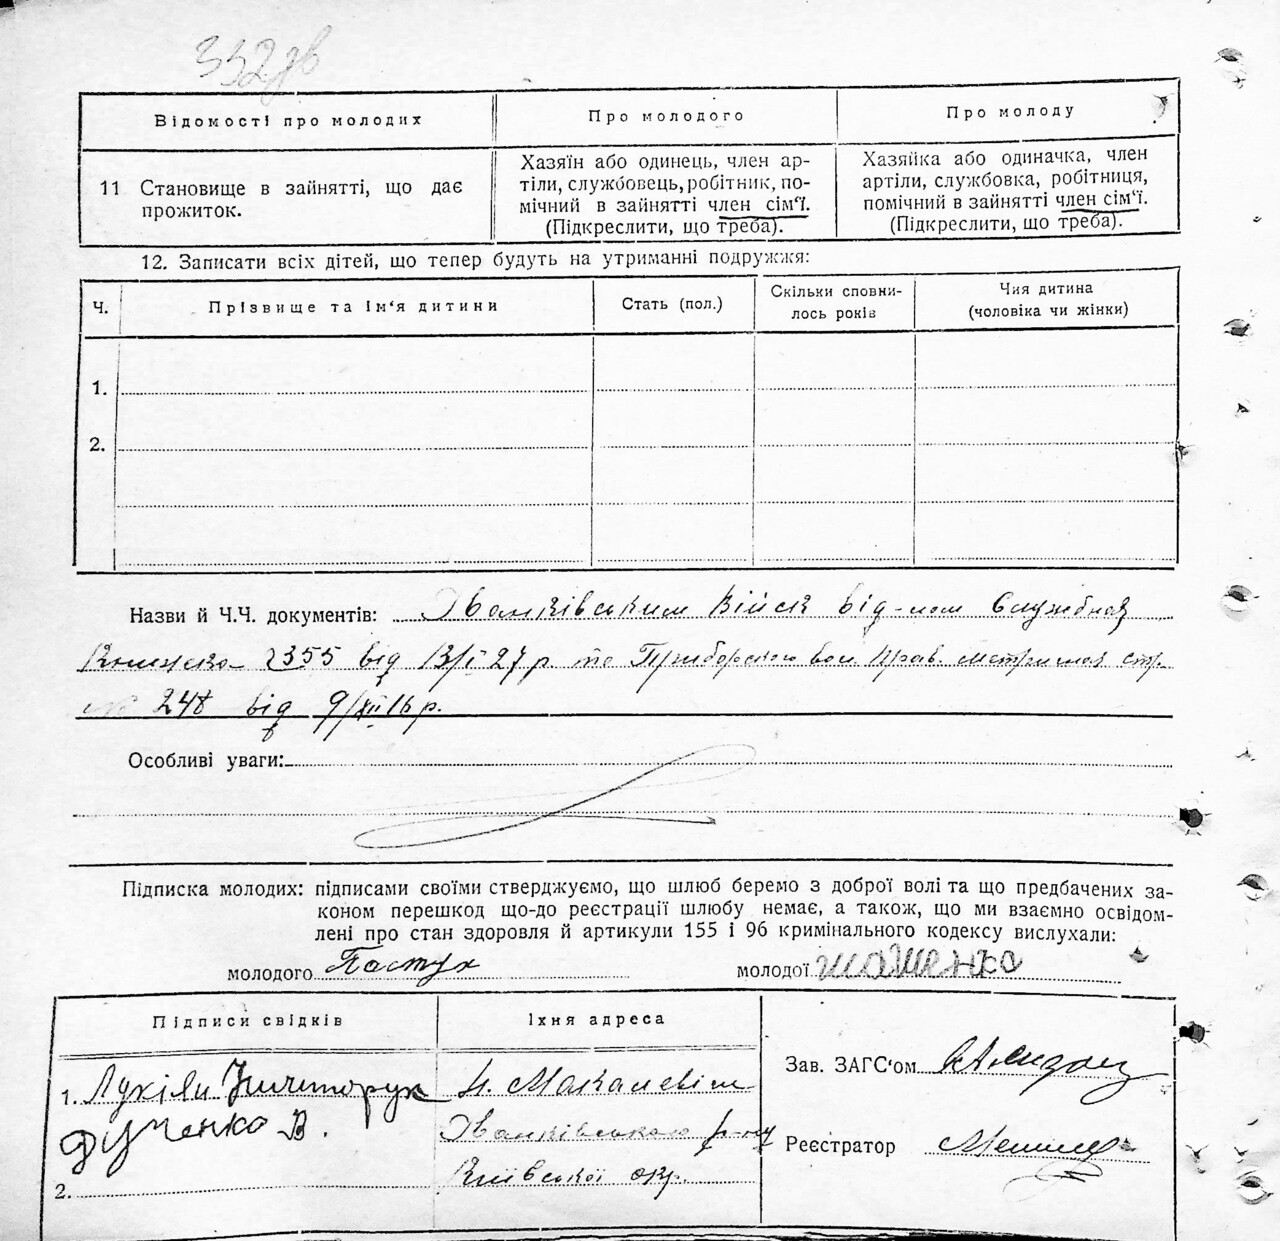 352 зв
Відомості про молодих
Про молодого
Про молоду
11 Становище в зайнятті, що дає
прожиток.
Хазяїн або одинець, член ар-
тіли, службовець, робітник, по-
мічний в зайнятті член сім'ї.
(Підкреслити, що треба).
Хазяйка або одиначка, член
артіли, службовка, робітниця,
помічний в зайнятті член сім'ї.
(Підкреслити, що треба).
12. Записати всіх дітей, що тепер будуть на утриманні подружжя:
Ч.
Прізвище та ім'я дитини
Стать (пол.)
Скільки сповни-
лось років
Чия дитина
(чоловіка чи жінки)
1.
2.
Назви й Ч.Ч. документів: Іванківським Військ від-лом Службная
Книжка 2355 від 13/І 27 р. та Приборского вол. прав. метрична
№ 248 від 9/ХІІ 16 р.
Особливі уваги:
Підписка молодих: підписами своїми стверджуємо, що шлюб беремо з доброї волі та що предбачених за-
коном перешкод що-до реєстрації шлюбу немає, а також, що ми взаємно освідом-
лені про стан здоровля й артикули 155 і 96 кримінального кодексу вислухали:
молодого Пастух
молодої
Підписи свідків
Їхня адреса
1. Лукіян
В.
2.
с. Макалевіч
Іванківського р-ну
Київської окр.
Зав. ЗАГС'ом
Реєстратор